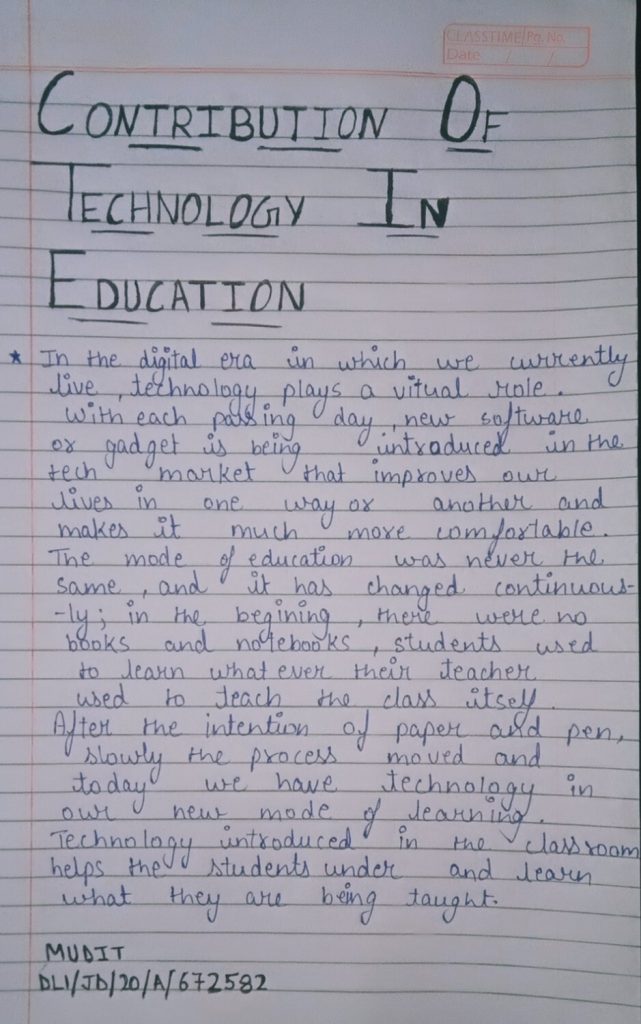 CLASSTIME Pg. No.
Date / /
CONTRIBUTION OF
TECHNOLOGY IN
EDUCATION
* In the digital era in which we currently
live, technology plays a vitual role.
With each passing day, new software
or gadget is being introduced in the
tech market that improves our
lives in one way or another and
makes it much more comfortable.
The mode of education was never the
same, and it has changed continuous-
-ly; in the begining, there were no
books and notebooks, students used
to learn what ever their teacher
used to teach the class itself.
After the intention of paper and pen,
slowly the process moved and
today we have technology in
our new mode of learning.
Technology introduced in the classroom
helps the students under and learn
what they are being taught.
MUDIT
DLI/JD/20/A/672582